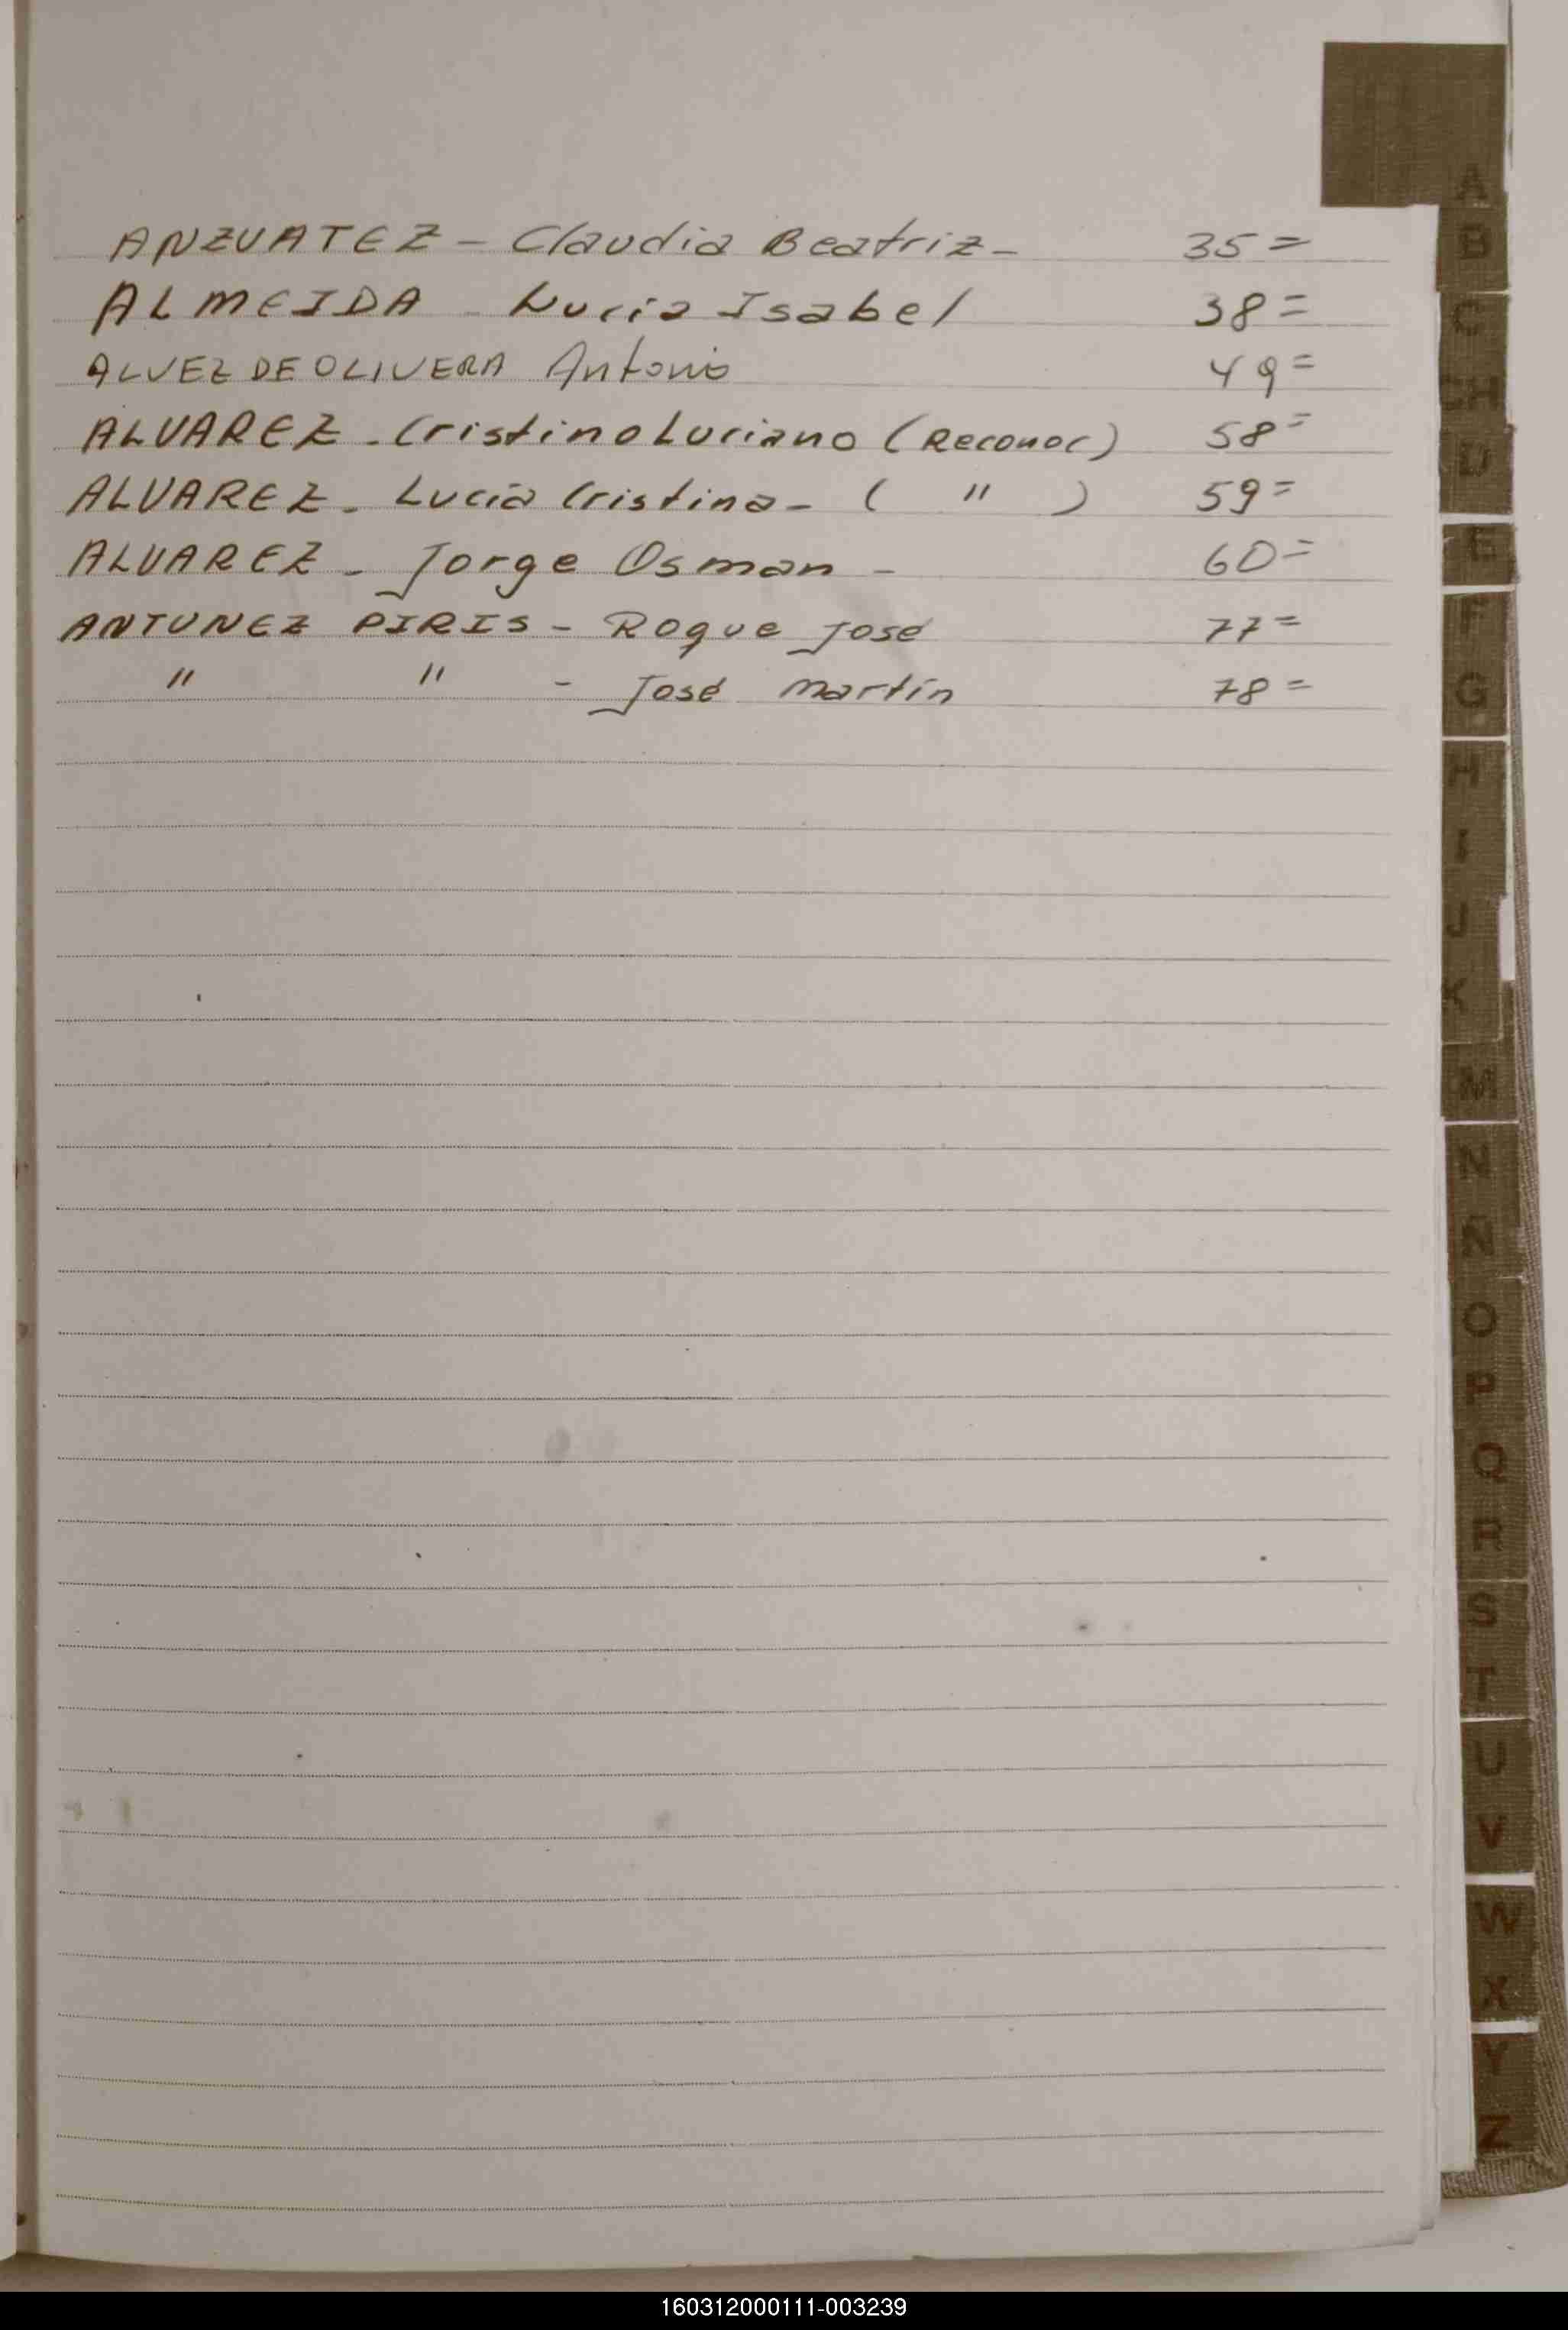 ANZUATEZ - Claudia Beatriz - 35=
ALMEIDA - Lucia Isabel 38=
ALVEZ DE OLIVERA Antonio 49=
ALVAREZ - Cristino Luciano (Reconoc) 58=
ALVAREZ - Lucía Cristina - ( " ) 59=
ALVAREZ - Jorge Osman - 60=
ANTUNEZ PIRIS - Roque José 77=
" " - José Martín 78=
A
B
C
CH
D
E
F
G
H
I
J
K
M
N
Ñ
O
P
Q
R
S
T
U
V
W
X
Y
Z
160312000111-003239